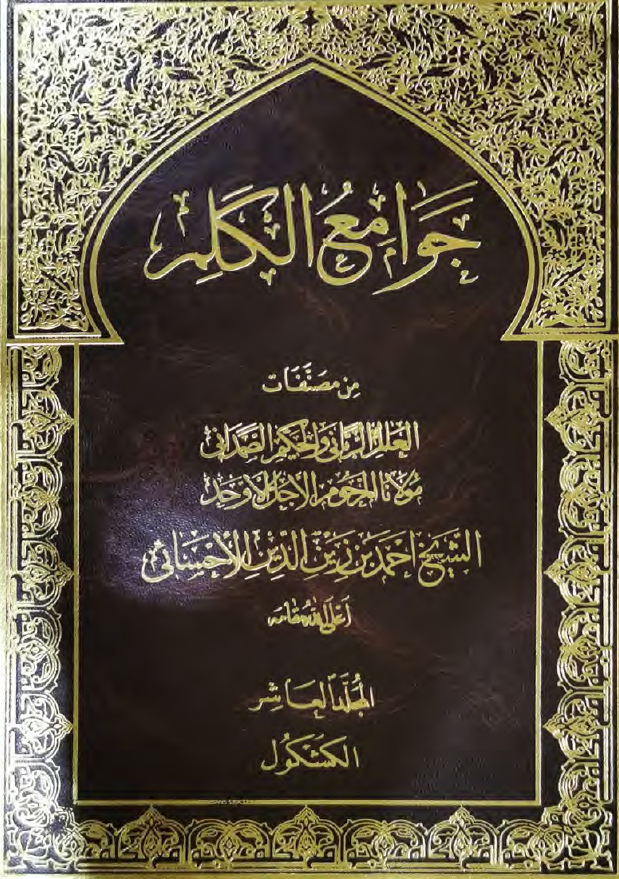 جَوَامِعُ الكَلِمِ
مِن مُصَنَّفَات
العَالم الرَّبّاني وَالحَكيم الصَّمَداني
مَولانَا المَرحُوم الأجَل الأوحَد
الشيخ احمَد بن زين الدّين الأحسَائي
أعلى الله مقامه
المجُلّد العَاشِر
الكَشكُول